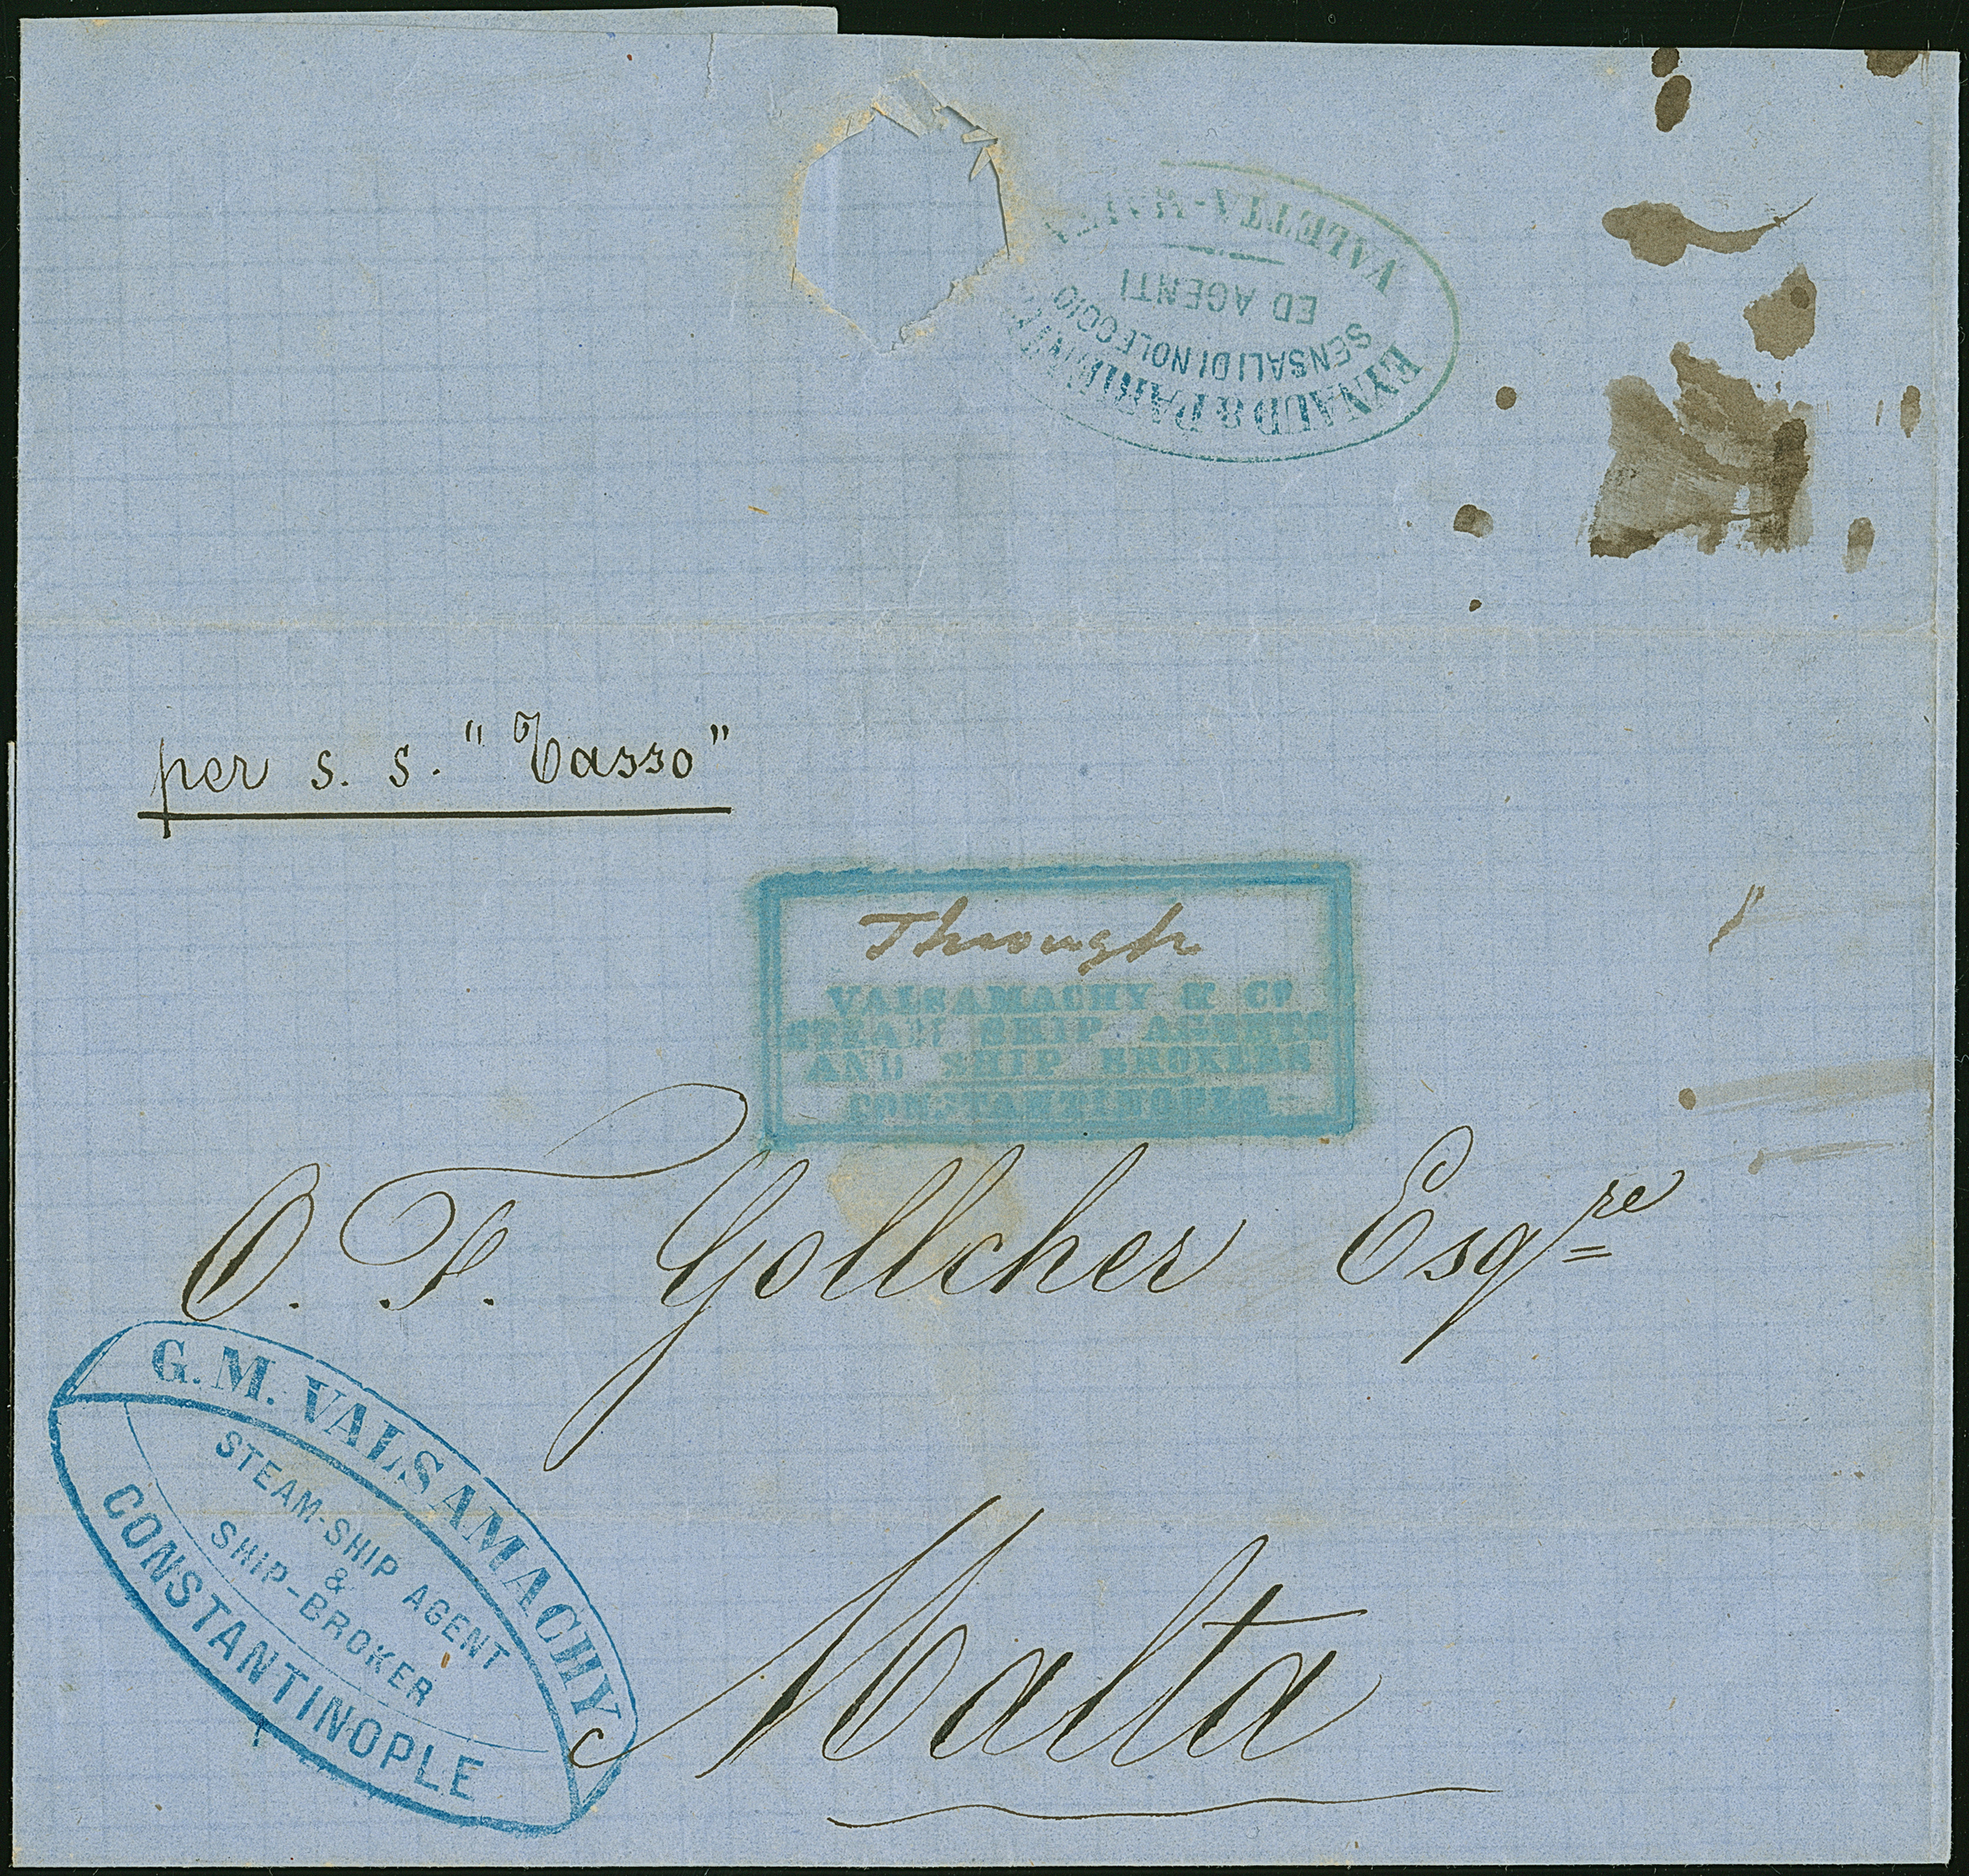 VALETTA-MALTA
ED AGENTI
SENSALI DI NOLEGGIO
EYNAUD &
per s. s. "Tasso"
Through
VALSAMACHY & Co
STEAM SHIP AGENTS
AND SHIP BROKERS
CONSTANTINOPLE
O. F. Gollcher Esqre
G. M. VALSAMACHY
STEAM-SHIP AGENT
&
SHIP-BROKER
CONSTANTINOPLE
Malta